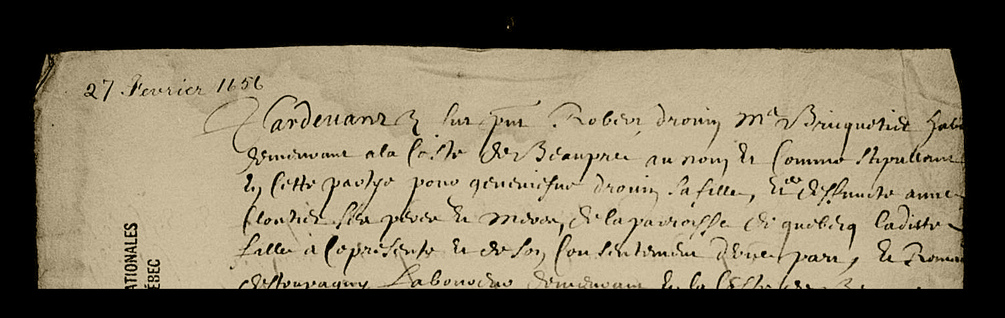 27 Fevrier 1656
Pardevant sur pnt Robert drouin Me Bricquetier hab
demeurant a la Coste de Beaupre au nom et Comme stipullant
En Cette partye pour geneviefve drouin sa fille, et de deffuncte anne
Cloutier ses pere et mere, de la parroisse de quebecq ladiste
fille a ce presente et de son Consentement d'une part, Et Romain
Laboureur demeurant En la Coste de
ATIONALES
ÉBEC